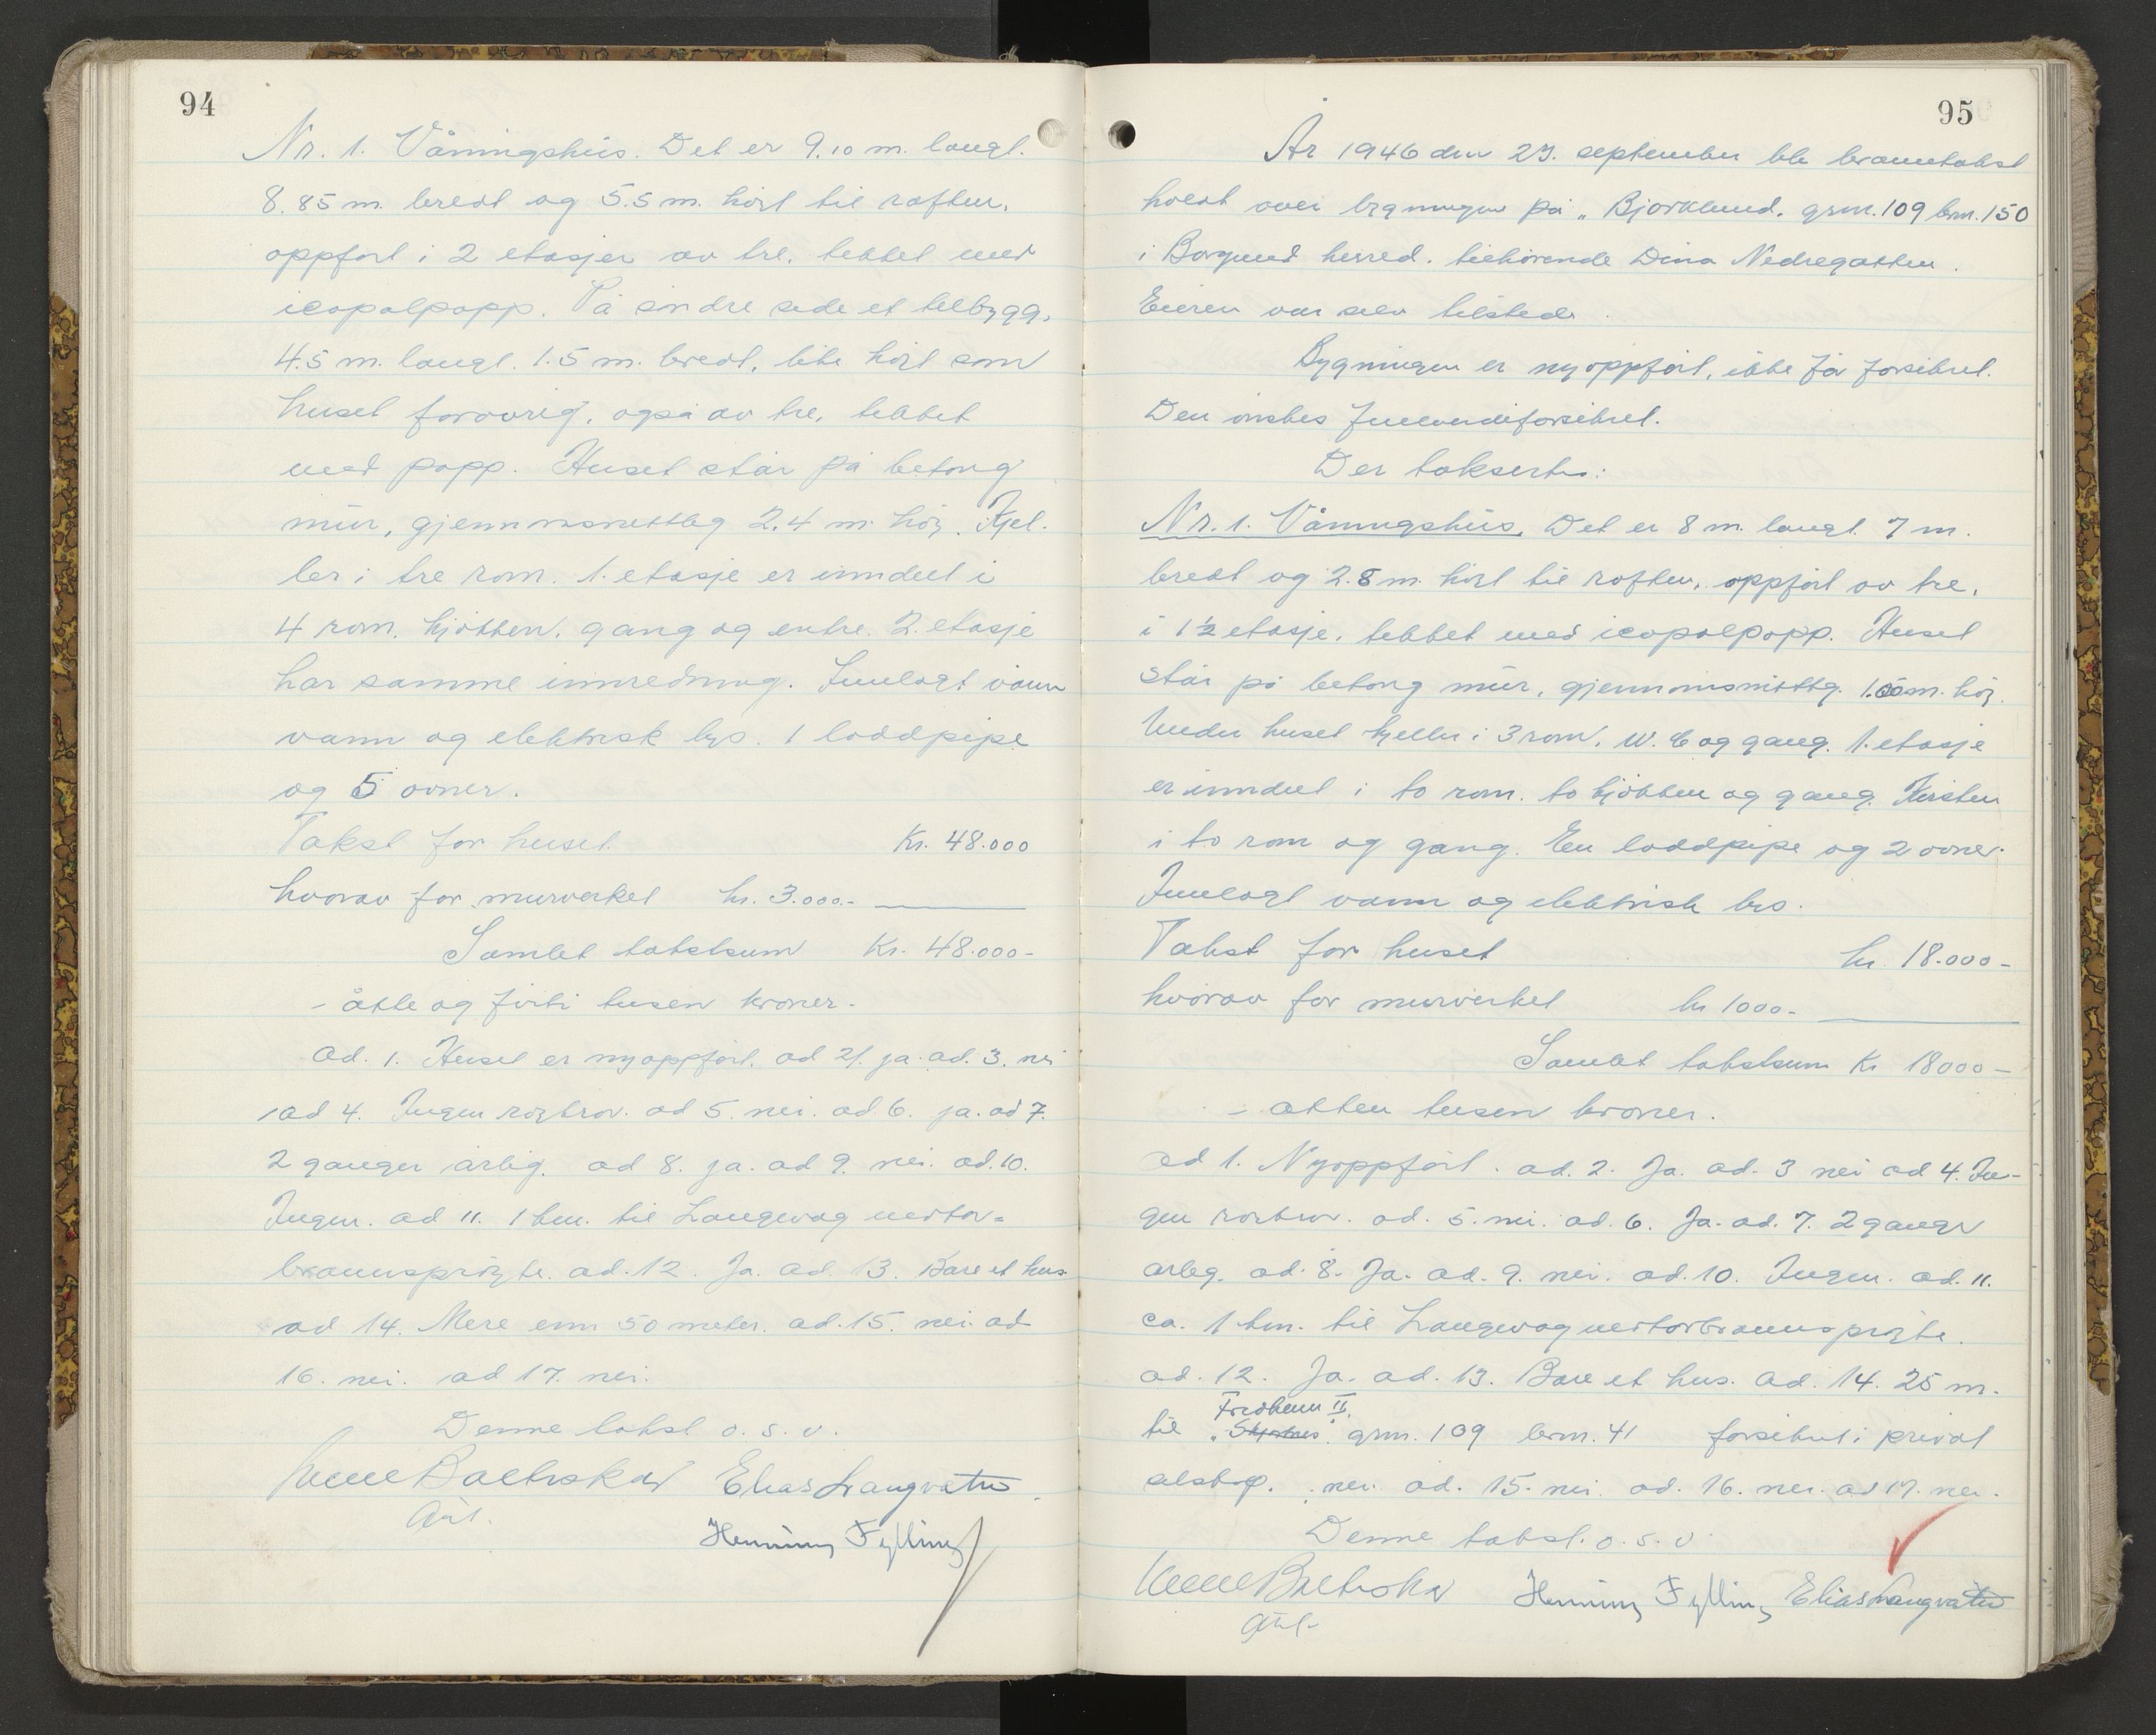 94
Nr. 1. Våningshus. Det er 9.10 m. langt.
8.85 m. bredt og 5.5 m. høit til raften,
oppført i 2 etasjer av tre, tekket med
icopalpapp. På søndre side et tilbygg,
4.5 m. langt. 1.5 m. bredt, like høit som
huset forøvrig, også av tre, tekket
med papp. Huset står på betong
mur, gjennomsnittlig 2.4 m. høg. Kjel-
ler i tre rom. 1. etasje er inndelt i
4 rom, kjøkken, gang og entre. 2. etasje
har samme innredning. Innlagt vann
vann og elektrisk lys. 1 loddpipe
og 5 ovner.
Takst for huset Kr. 48.000
hvorav for murverket kr. 3.000.-
Samlet takstsum Kr. 48.000-
- åtte og førti tusen kroner-
ad. 1. Huset er nyoppført. ad 2. ja. ad. 3. nei
ad 4. Ingen ad 5. nei. ad. 6. ja. ad 7.
2 ganger årlig. ad 8. ja. ad 9. nei. ad. 10.
Ingen. ad 11. 1 km. til Langevåg motor=
brannsprøyte. ad. 12. Ja. ad. 13. Bare et hus.
ad 14. Mere enn 50 meter. ad. 15. nei. ad
16. nei. ad 17. nei.
Denne takst o. s. v.
Elias Langvatn
Henning Fylling
95
År 1946 den 27. september ble branntakst
holdt over bygningen på "Bjørklund" gnr. 109 bnr. 150
i Borgund herred. tilhørende Dina Nedregotten.
Eieren var selv tilstede.
Bygningen er nyoppført, ikke før forsikret.
Den ønskes fullverdiforsikret.
Der taksertes:
Nr. 1. Våningshus. Det er 8 m. langt 7 m.
bredt og 2.8 m. høit til raften, oppført av tre,
i 1½ etasje, tekket med icopalpapp. Huset
står på betong mur, gjennomsnittlig. m. høg.
Under huset kjeller i 3 rom, W. C og gang. 1. etasje
er inndelt i to rom. to kjøkken og gang. Kvisten
i to rom og gang. En loddpipe og 2 ovner.
Innlagt vann og elektrisk lys.
Takst for huset kr. 18.000-
hvorav for murverket kr 1000-
Samlet takstsum Kr 18000-
- atten tusen kroner.
ad 1. Nyoppført. ad. 2. Ja. ad. 3 nei ad 4. In-
gen ad. 5. nei. ad. 6. Ja. ad. 7. 2 ganger
årleg. ad. 8. Ja. ad. 9. nei. ad. 10. Ingen. ad. 11.
ca. 1 km. til Langevåg motorbrannsprøyte.
ad. 12. Ja. ad. 13. Bare et hus. ad. 14. 25 m.
Fredheim II.
til gnr. 109 bnr. 41 forsikret i privat
selskap. nei. ad. 15. nei. ad. 16. nei. ad 17. nei.
Denne takst. o. s. v
Henning Fylling Elias Langvatn